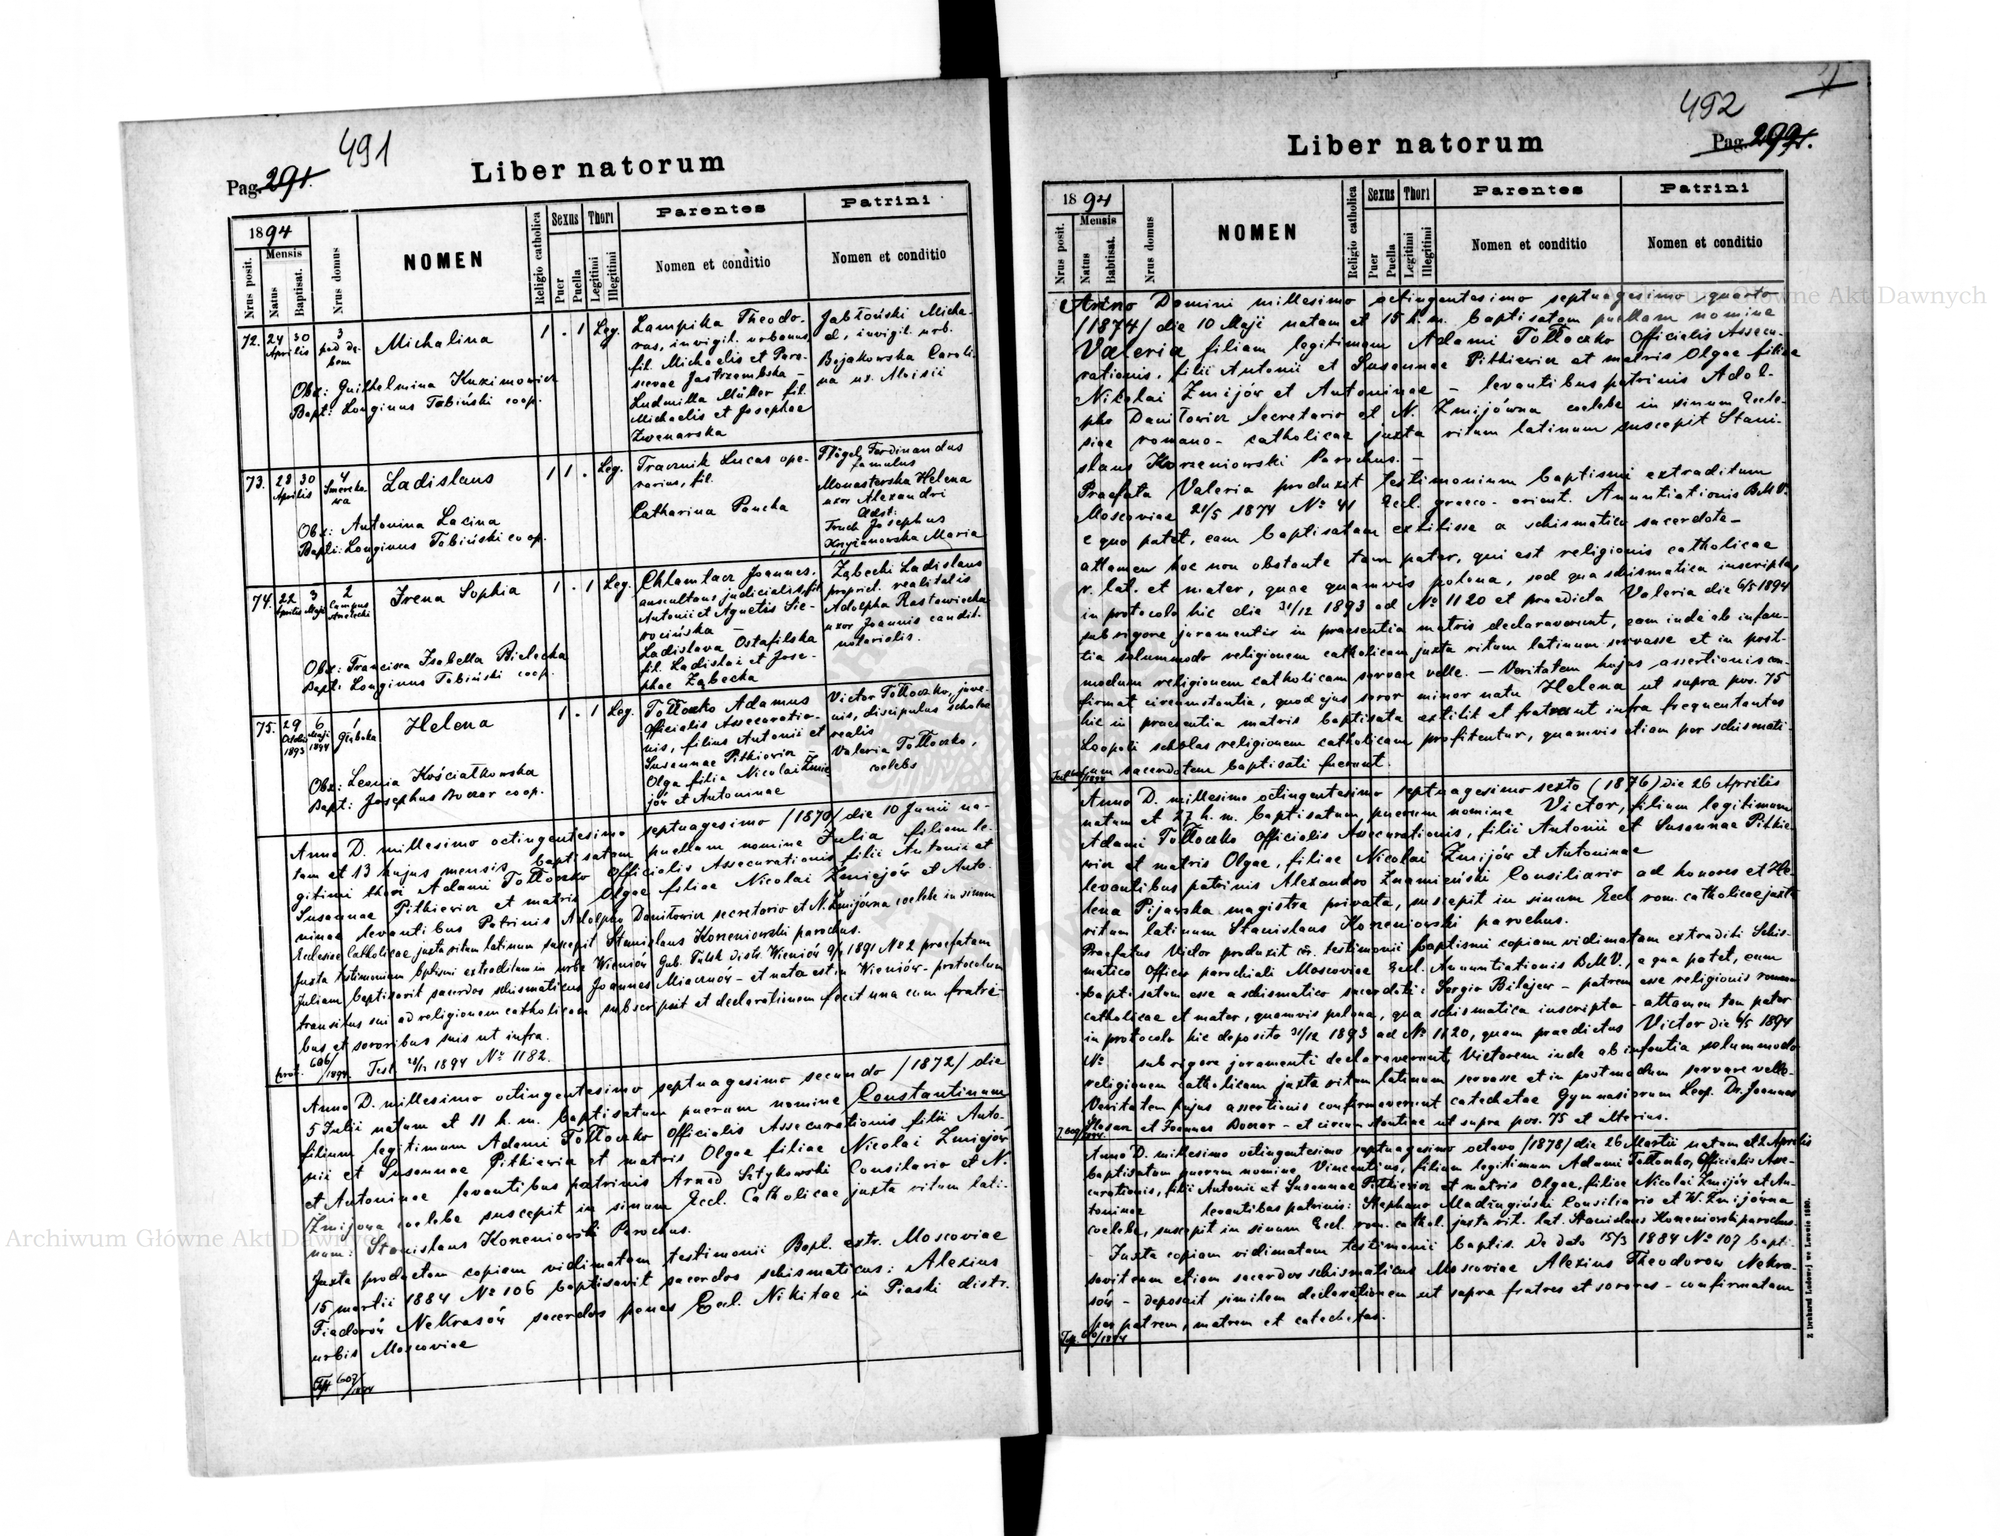 491
Pag. 291.
Liber natorum
1894
Mensis
Nrus posit.
Natus
Baptisat.
Nrus domus
NOMEN
Religio catholica
Sexus
Puer
Puella
Thori
Legitimi
Illegitimi
Parentes
Nomen et conditio
Patrini
Nomen et conditio
72. 24 30 Aprilis
3
Michalina
1 . 1 Leg.
Obst: Guilhelmina Kuzimowicz
Bapt: Longinus Tobiński coop.
Lampika Theodo-
rus, invigil. urbanus
fil. Michaelis et Para-
scevae Jastrzembska –
Ludmilla Müller fil.
Michaelis et Josephae
Zwenarska
Jabłoński Micha-
el, invigil. urb.
Bojakowska Caroli-
na ux. Aloisii
73. 28 30 Aprilis
4
Ladislaus
1 1 . Leg.
Obst: Antonina Lacina
Bapti: Longinus Tobiński coop.
Tracznik Lucas ope-
rarius, fil.
Catharina Pancha
Flögel Ferdinandus
famulus
Monasterska Helena
uxor Alexandri
Adst:
Josephus
Krzyżanowska Maria
74. 22 Aprilis 3 Maji
2
Campus
Irena Sophia
1 . 1 Leg.
Obst: Francisca Isabella Bielecka
Bapt: Longinus Tobiński coop.
Chlamtacz Joannes,
auscultans judicialis, fil.
Antonii et Agnetis Sie-
rocińska –
Ladislava Ostafilska
fil. Ladislai et Jose-
phae Ząbecka
Ząbecki Ladislaus
propriet. realitatis
Adolpha Rastawiecka
uxor Joannis candid.
notarialis.
75. 29 Octobris 1893 6 Maji 1894
1
Głęboka
Helena
1 . 1 Leg.
Obst: Leonia Kościałkowska
Bapt: Josephus Boczar coop.
Tołłoczko Adamus
Officialis Assecuratio-
nis, filius Antonii et
Susannae Pitkiewicz –
Olga filia Nicolai Żmi-
jów et Antoninae
Victor Tołłoczko, juve-
nis, discipulus scholae
realis
Valeria Tołłoczko,
coelebs
Anno D. millesimo octingentesimo septuagesimo /1870/ die 10 Junii na-
tam et 13 hujus mensis baptisatam puellam nomine Julia filiam le-
gitimi thori Adami Tołłoczko Officialis Assecurationis filii Antonii et
Susannae Pitkiewicz et matris Olgae filiae Nicolai Żmiejów et Anto-
ninae levantibus Patrinis Adolpho Daniłowicz secretario et N. Żmijówna coelebe in sinum
Ecclesiae Catholicae juxta ritum latinum suscepit Stanislaus Korzeniowski parochus.
Juxta testimonium baptismi extraditum in urbe Wieniów Gub. Tulsk distr. Wieniów 1891 No 2 praefatam
Juliam baptisavit sacerdos schismaticus Joannes Miacznów – et nata est in Wieniów – protocolum
transitus sui ad religionem catholicam subscripsit et declarationem fecit una cum fratri-
bus et sororibus suis ut infra.
606/1894. Test. 1894 No 1182.
Anno D. millesimo octingentesimo septuagesimo secundo /1872/ die
5 Julii natum et 11 h. m. baptisatum puerum nomine Constantinum
filium legitimum Adami Tołłoczko Officialis Assecurationis filii Anto-
nii et Susannae Pitkiewicz et matris Olgae filiae Nicolai Żmiejów
et Antoninae levantibus patrinis Sztykowski Consilario et N.
Żmijowa coelebe suscepit in sinum Eccl. Catholicae juxta ritum lati-
num: Stanislaus Korzeniowski Parochus.
Juxta productam copiam vidimatam testimonii Bapt. extr. Moscoviae
15 martii 1884 No 106 baptisavit sacerdos schismaticus: Alexius
Fiedorów Nekrasów sacerdos penes Eccl. Nikitae in Piaski distr.
urbis Moscoviae
607/1894
492
Pag. 299.
Liber natorum
1894
Mensis
Nrus posit.
Natus
Babtisat.
Nrus domus
NOMEN
Religio catholica
Sexus
Puer
Puella
Thori
Legitimi
Illegitimi
Parentes
Nomen et conditio
Patrini
Nomen et conditio
Anno Domini millesimo octingentesimo septuagesimo quarto
/1874/ die 10 Maji natam et 15 h. m. baptisatam puellam nomine
Valeria filiam legitimam Adami Tołłoczko Officialis Assecu-
rationis, filii Antonii et Susannae Pitkiewicz et matris Olgae filiae
Nikolai Żmijów et Antoninae – levantibus patrinis Adol-
pho Daniłowicz Secretario et N. Żmijówna coelebe in sinum Eccle-
siae romano-catholicae juxta ritum latinum suscepit Stani-
slaus Korzeniowski Parochus. –
Praefata Valeria produxit testimonium baptismi extraditum
Moscoviae 21/5 1874 No 41 Eccl. graeco-orient. Anuntiationis B.M.V.
e quo patet, eam baptisatam extitisse a schismatico sacerdote –
attamen hoc non obstante tam pater, qui est religionis catholicae
r. lat. et mater, quae quamvis polona, sed qua schismatica inscripta,
in protocolo hic die 31/12 1893 ad No 1120 et praedicta Valeria die 6/5 1894
sub rigore juramenti in praesentia matris declaraverunt, eam inde ab infan-
tia solummodo religionem catholicam juxta ritum latinum servasse et in post-
modum religionem catholicam servare velle. – Veritatem hujus assertionis con-
firmat circumstantia, quod ejus soror minor natu Helena ut supra pos. 75
hic in praesentia matris baptisata extitit et fratres ut infra frequentantes
Leopoli scholas religionem catholicam profitentur, quamvis etiam per schismati-
cum sacerdotem baptisati fuerunt.
Anno D. millesimo octingentesimo septuagesimo sexto (1876) die 26 Aprilis
natum et 27 h. m. baptisatum, puerum nomine Victor, filium legitimum
Adami Tołłoczko Officialis Assecurationis, filii Antonii et Susannae Pitkie-
wicz et matris Olgae, filiae Nicolai Żmijów et Antoninae
levantibus patrinis Alexandro Znamieński Consiliario ad honores et He-
lena Pijarska magistra privata, suscepit in sinum Eccl. rom. catholicae juxta
ritum latinum Stanislaus Korzeniowski parochus.
Praefatus Victor produxit testimonii baptismi copiam vidimatam extraditi Schis-
matico Officio parochiali Moscoviae Eccl. Annuntiationis B.M.V., a qua patet, eum
baptisatum esse a schismatico sacerdoti: Sergio Bilajew – patrem esse religionis romano
catholicae et mater, quamvis polona, qua schismatica inscripta – attamen tam pater
in protocolo hic deposito 31/12 1893 ad No 1120, quam praedictus Victor die 6/5 1894
No sub rigore juramenti declaraverunt, Victorem inde ab infantia solummodo
religionem catholicam juxta ritum latinum servasse et in postmodum servare velle.
Veritatem hujus assertionis confirmaverunt catechetae Gymnasiorum Leop. Dr. Joannes
Slosarz et Joannes Boczar – et circumstantiae ut supra pos. 75 et ulterius.
Anno D. millesimo octingentesimo septuagesimo octavo /1878/ die 26 Martii natum et 2 Aprilis
baptisatum puerum nomine Vincentius, filium legitimum Adami Tołłoczko, Officialis Asse-
curationis, filii Antonii et Susannae Pitkiewicz et matris Olgae, filiae Nicolai Żmijów et An-
toninae levantibus patrinis: Stephano Madingiński Consiliario et W. Żmijówna
coelebe, suscepit in sinum Eccl. rom. cathol. juxta rit. lat. Stanislaus Korzeniowski parochus.
– Juxta copiam vidimatam testimonii baptis. de dato 15/3 1884 No 107 bapti-
savit eum etiam sacerdos schismaticus Moscoviae Alexius Theodorow Nekra-
sów – deposuit similem declarationem ut supra fratres et sorores – confirmatam
per patrem, matrem et catechetas.
Z Drukarni Ludowej we Lwowie 1890.
Archiwum Główne Akt Dawnych
Archiwum Główne Akt Dawnych